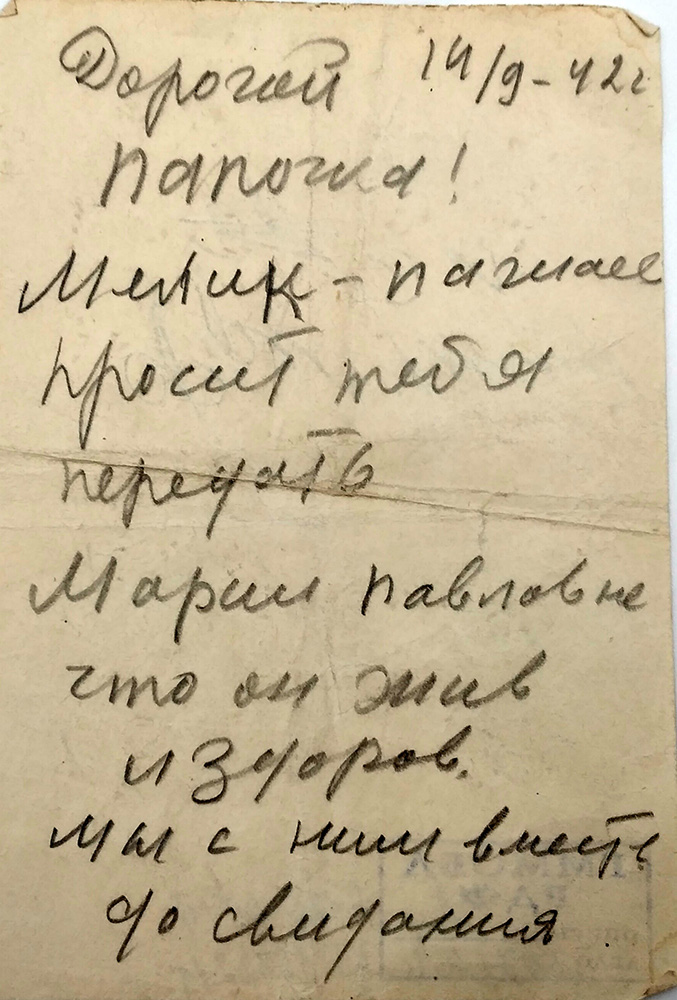 Дорогой 14/9-42г
папочка!
Мелик-
просит тебя
передать
Марии Павловне
что он жив
и здоров.
Мы с ним вместе
до свидания